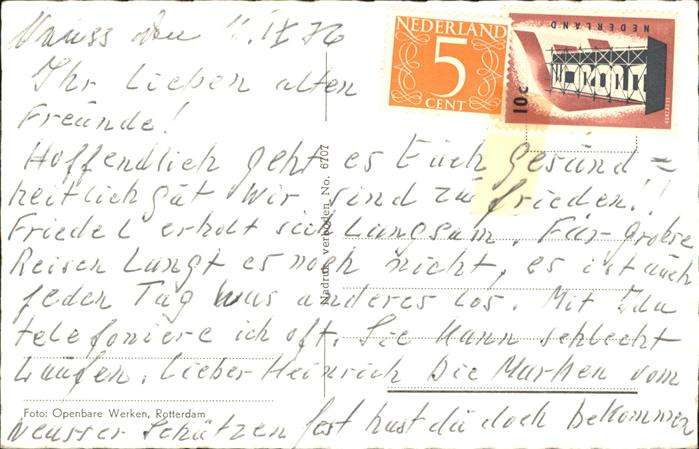 Neuss den 11.IX 76
Ihr Lieben alten
Freunde!
Hoffendlich geht es Euch gesund=
heitlich gut wir sind zu frieden!!
Friedel erholt sich Langsam. Für grosse
Reisen Langt es noch nicht, es ist auch
jeden Tag was anderes los. Mit Ida
telefoniere ich oft. Sie kann schlecht
Laufen. Lieber Heinrich Die Marken vom
Neusser Schützen fest hast du doch bekommen
NEDERLAND
5
CENT
NEDERLAND
10c
Nadruk verboden No. 6707
Foto: Openbare Werken, Rotterdam